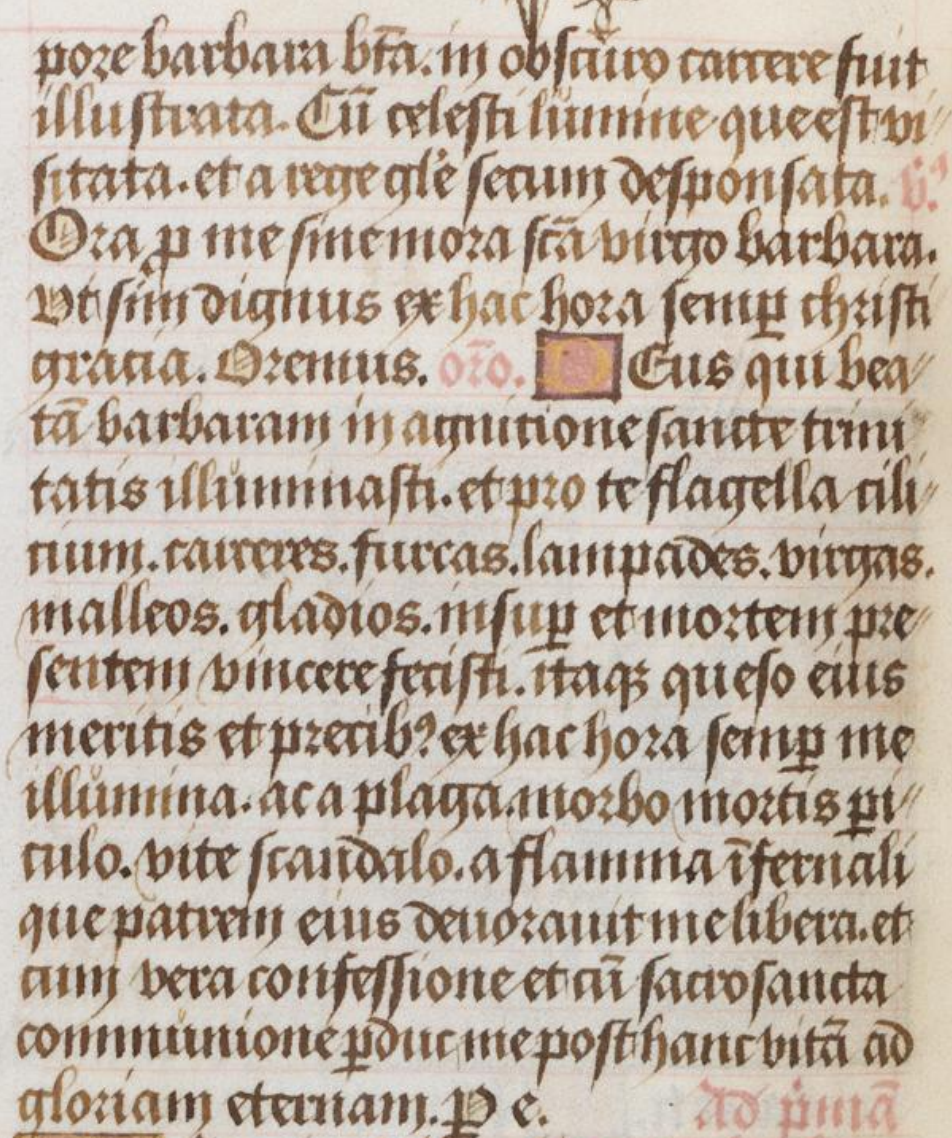 pore barbara bt̄a. in obscuro carcere fuit
illustrata. Cū celesti lumine que est vi
sitata. et a rege gl̄e secum desponsata. v̉.
Ora ꝓ me sine mora sc̄a virgo barbara.
Vt sim dignus ex hac hora semꝑ christi
gracia. Oremus. or̄o. DEus qui bea
tā barbaram in agnitione sancte trini
tatis illuminasti. et pro te flagella cili
cium. carceres. furcas. lampades. virgas.
malleos. gladios. insuꝑ et mortem pre
sentem vincere fecisti. itaqꝫ queso eius
meritis et precibꝰ ex hac hora semꝑ me
illumina. ac a plaga. morbo mortis ꝑi
culo. vite scandalo. a flamma īfernali
que patrem eius deuorauit me libera. et
cum vera confessione et cū sacrosancta
communione ꝑduc me post hanc vitā ad
gloriam eternam. P e. Ad pͥmā